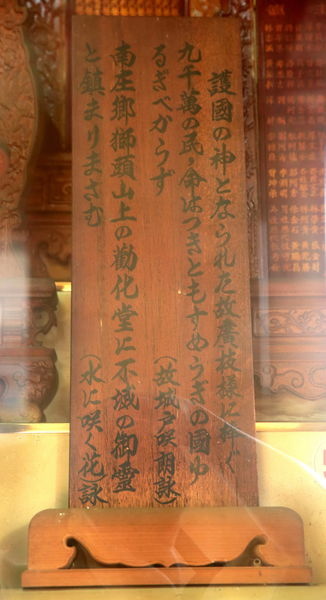 護國の神となられた故廣枝様に捧ぐ
九千萬の民ノ命はつきともすめらぎの國ゆ
るぎべからず（故城戸咲朋詠）
南庄鄉獅頭山上の勸化堂に不滅の御霊
と鎮まりまさむ（水に咲く花）詠